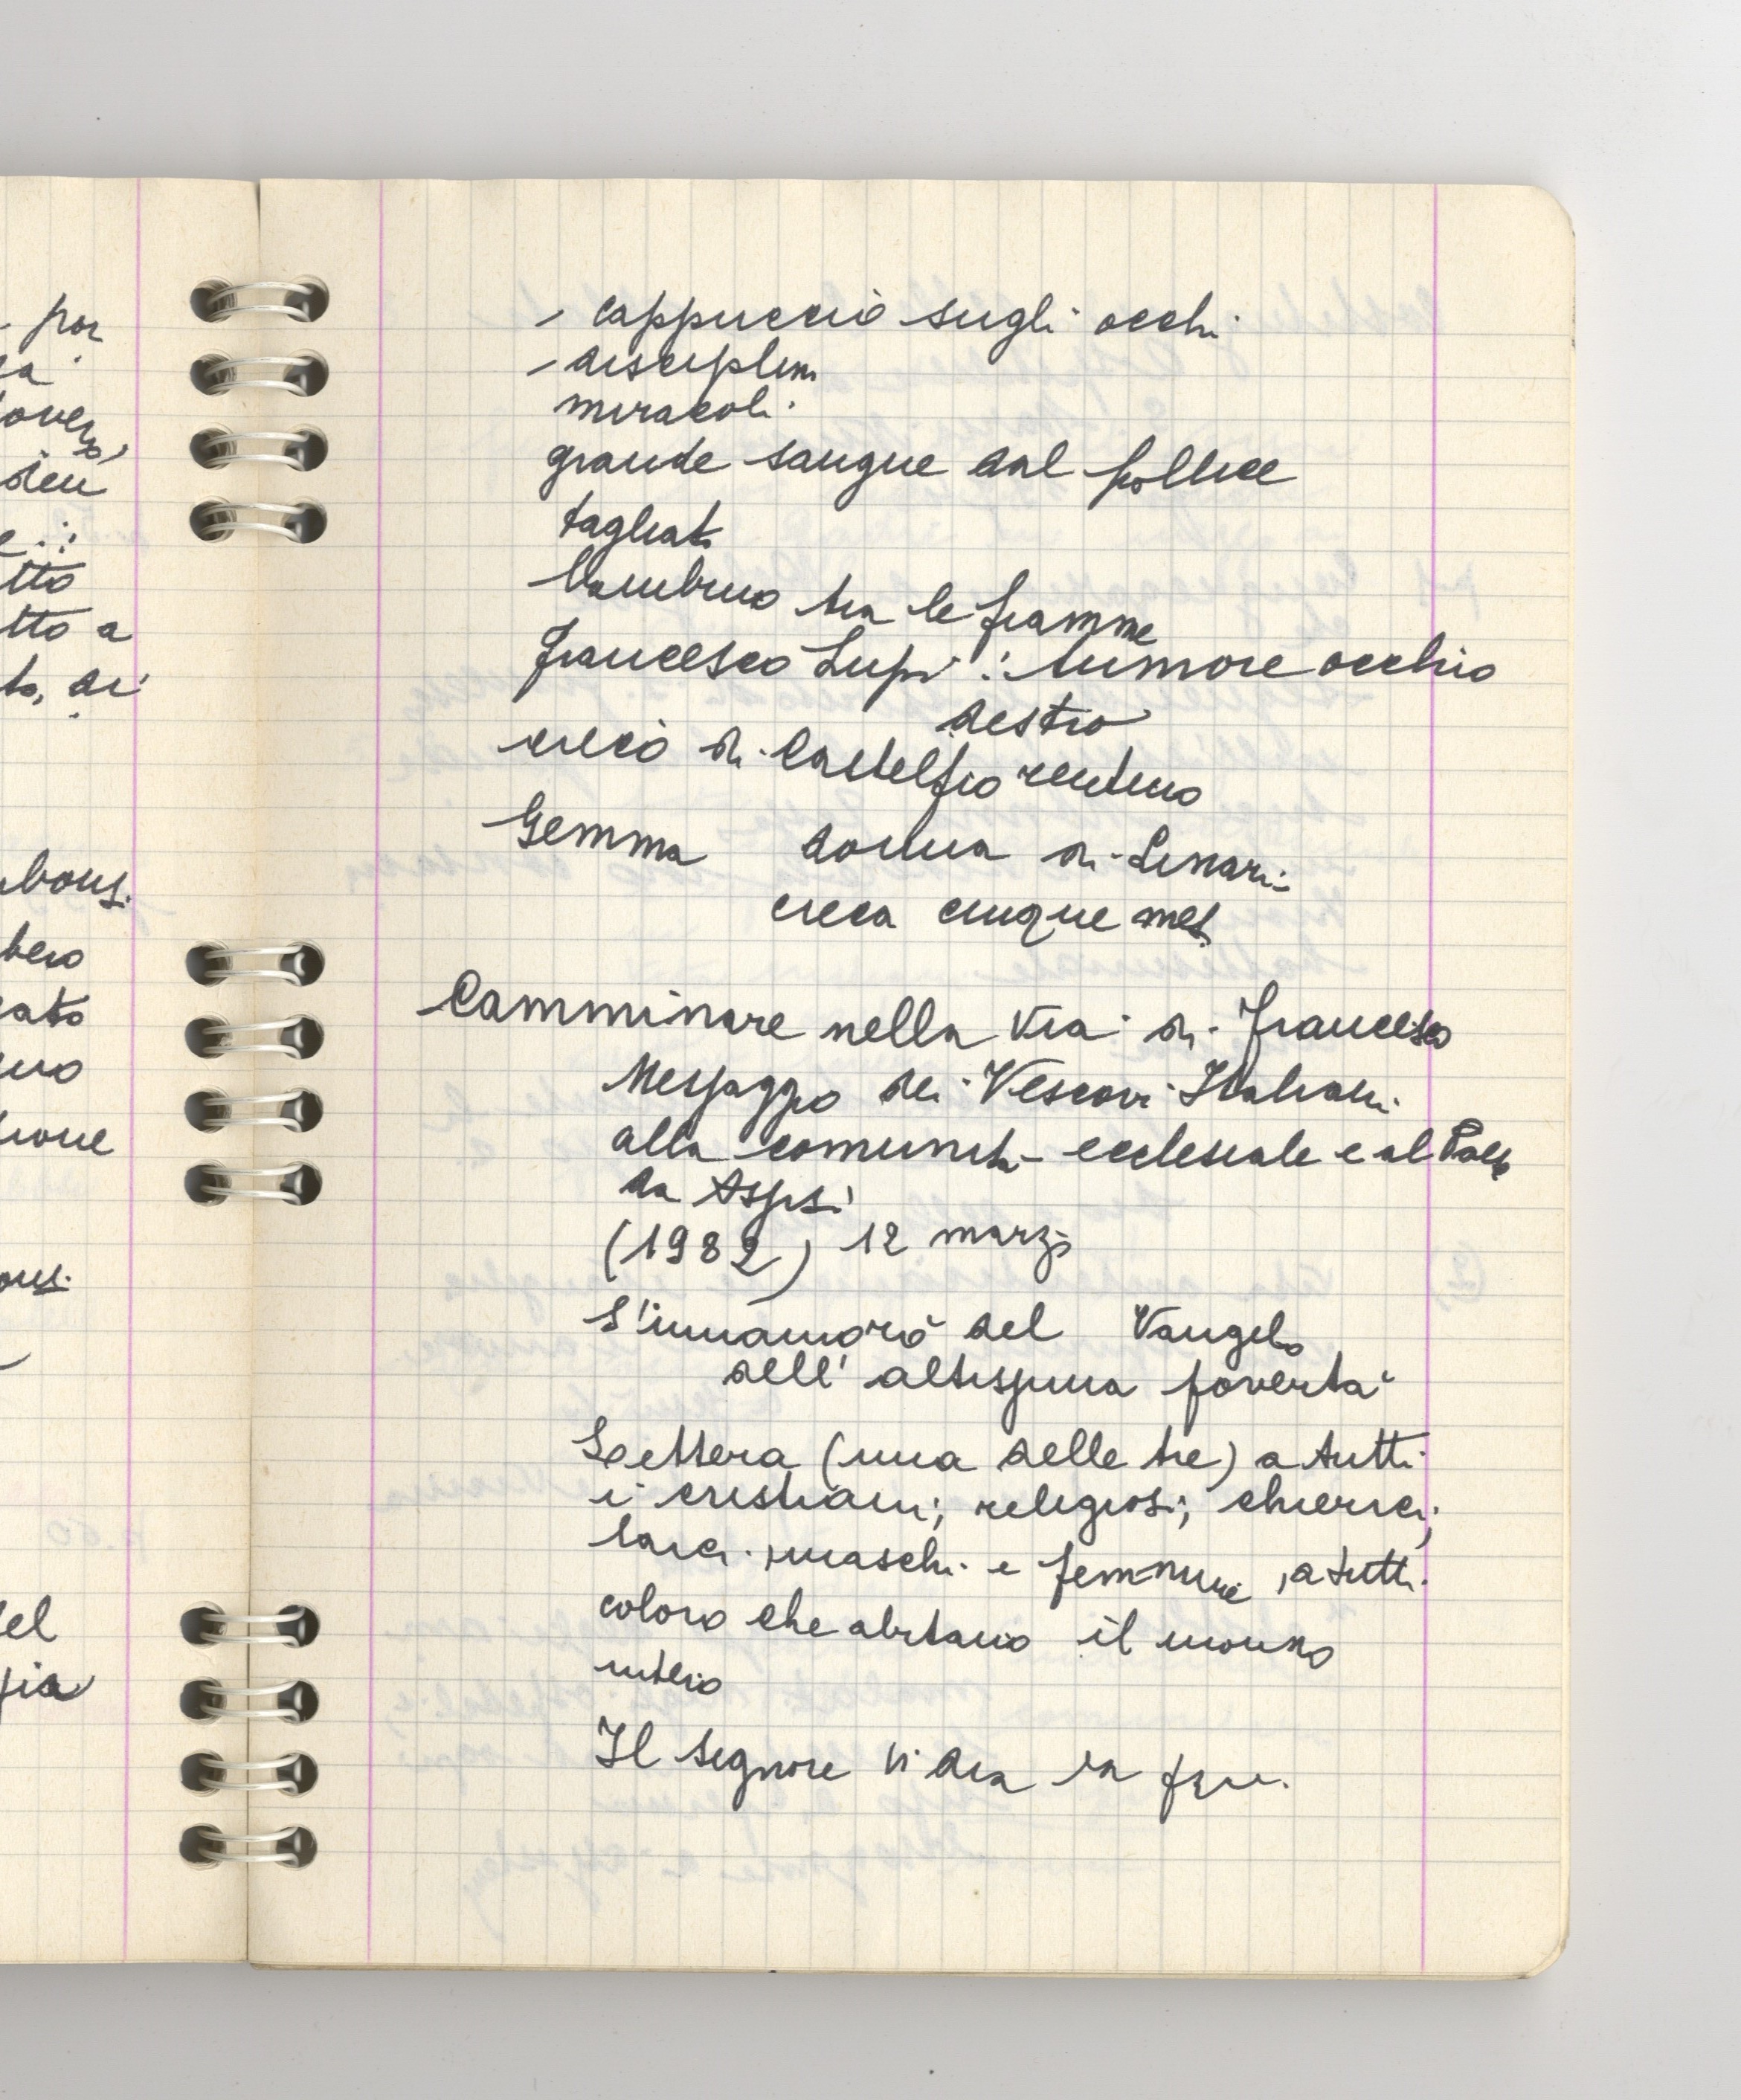 por
tto
tto a
to, di
bero
cato
zione
- cappuccio sugli occhi
- disciplina
miracoli
grande sangue dal pollice
tagliato
bambino tra le fiamme
Francesco Lupi : tumore occhio
destro
cieco di Castelfiorentino
Gemma donna di Linari
cieca cinque mesi
Camminare nella via di Francesco
Messaggio dei Vescovi Italiani
alla comunità ecclesiale e al Paese
da Assisi
(1982) 12 marzo
S'innamorò del Vangelo
dell' altissima povertà
Lettera (una delle tre) a tutti
i cristiani; religiosi; chierici;
laici, maschi e femmine, a tutti
coloro che abitano il mondo
intero
Il Signore vi dia la pace.